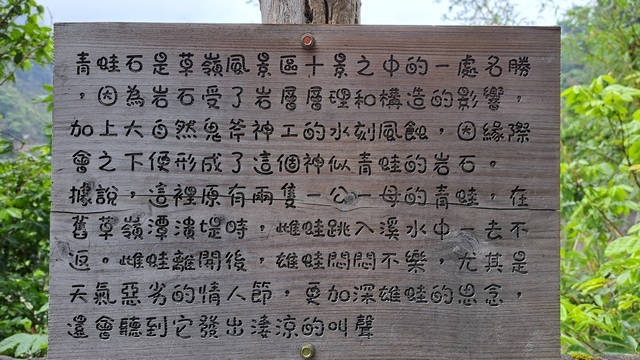 青蛙石是草嶺風景區十景之中的一處名勝
，因為岩石受了岩層層理和構造的影響，
加上大自然鬼斧神工的水刻風蝕，因緣際
會之下便形成了這個神似青蛙的岩石。
據說，這裡原有兩隻一公一母的青蛙，在
舊草嶺潭潰堤時，雌蛙跳入溪水中一去不
返。雌蛙離開後，雄蛙悶悶不樂，尤其是
天氣惡劣的情人節，更加深雄蛙的思念，
還會聽到它發出淒涼的叫聲